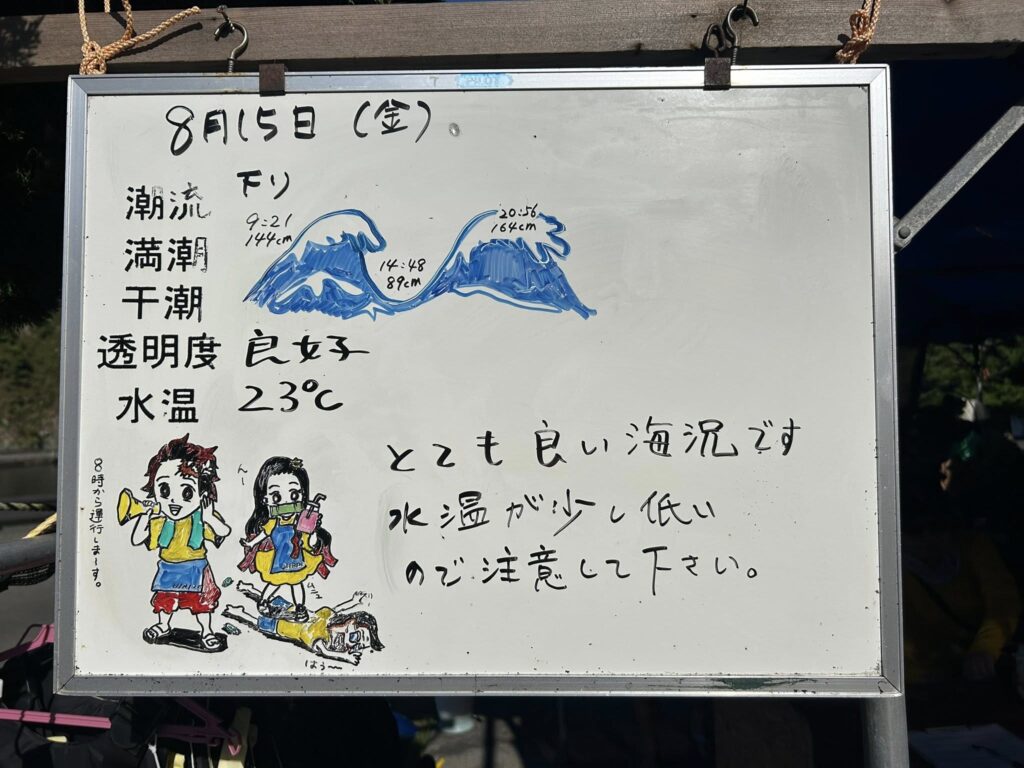 8月15日（金）
潮流 下り
満潮
9:21
144cm
20:56
164cm
干潮
14:48
89cm
透明度 良好
水温 23℃
とても良い海況です
水温が少し低い
ので注意して下さい。
8時から運行しまーす。
んー
はぅ〜